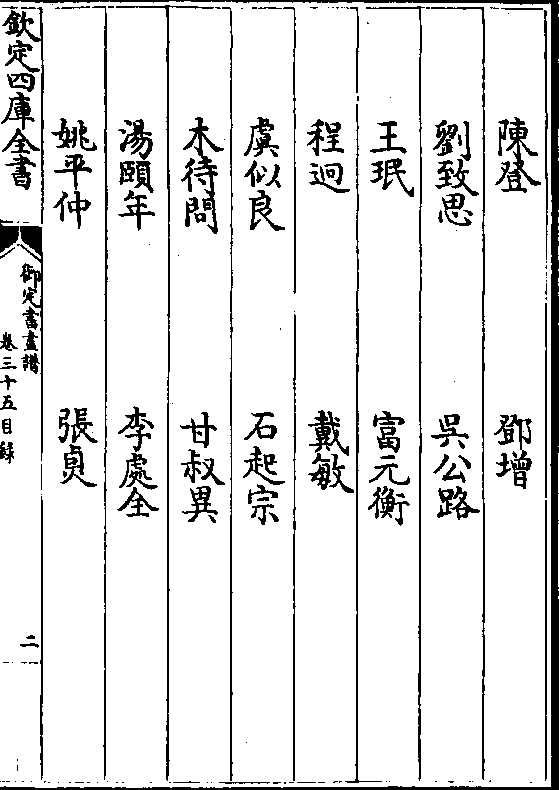 陳登　鄧增
劉致思　吳公路
王珉　富元衡
程迥　戴敏
虞似良　石起宗
木待問　甘叔異
湯頤年　李處全
姚平仲　張貞
欽定四庫全書
御定書畫譜
卷三十五目錄
二